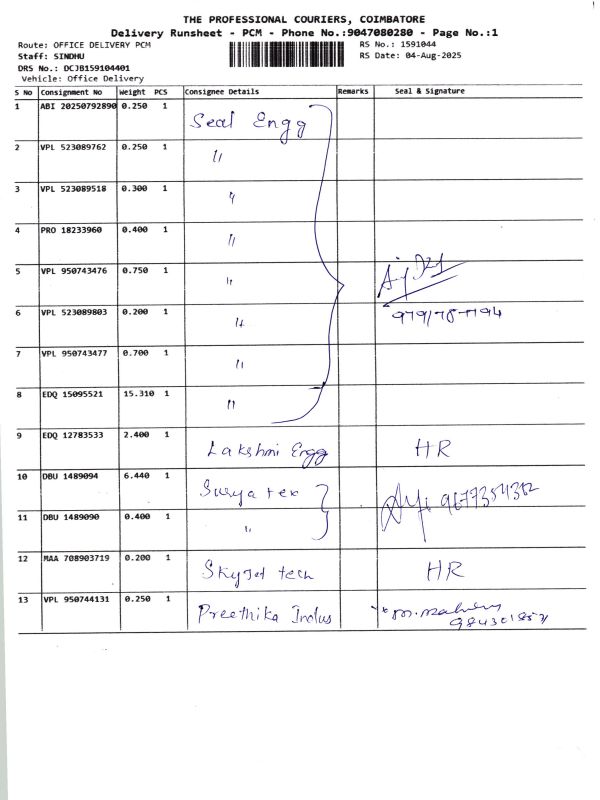 THE PROFESSIONAL COURIERS, COIMBATORE
Delivery Runsheet - PCM - Phone No.:9047080280 - Page No.:1
Route: OFFICE DELIVERY PCM RS No.: 1591044
Staff: SINDHU RS Date: 04-Aug-2025
DRS No.: DCJB159104401
Vehicle: Office Delivery
S No Consignment No Weight PCS Consignee Details Remarks Seal & Signature
1 ABI 20250792890 0.250 1 Seal Engg
2 VPL 523089762 0.250 1 "
3 VPL 523089518 0.300 1 "
4 PRO 18233960 0.400 1 "
5 VPL 950743476 0.750 1 "
6 VPL 523089803 0.200 1 "
7 VPL 950743477 0.700 1 "
8 EDQ 15095521 15.310 1 "
9 EDQ 12783533 2.400 1 Lakshmi Engg HR
10 DBU 1489094 6.440 1 Surya tex
11 DBU 1489090 0.400 1 "
12 MAA 708903719 0.200 1 Skyjet tech HR
13 VPL 950744131 0.250 1 Preethika Indus